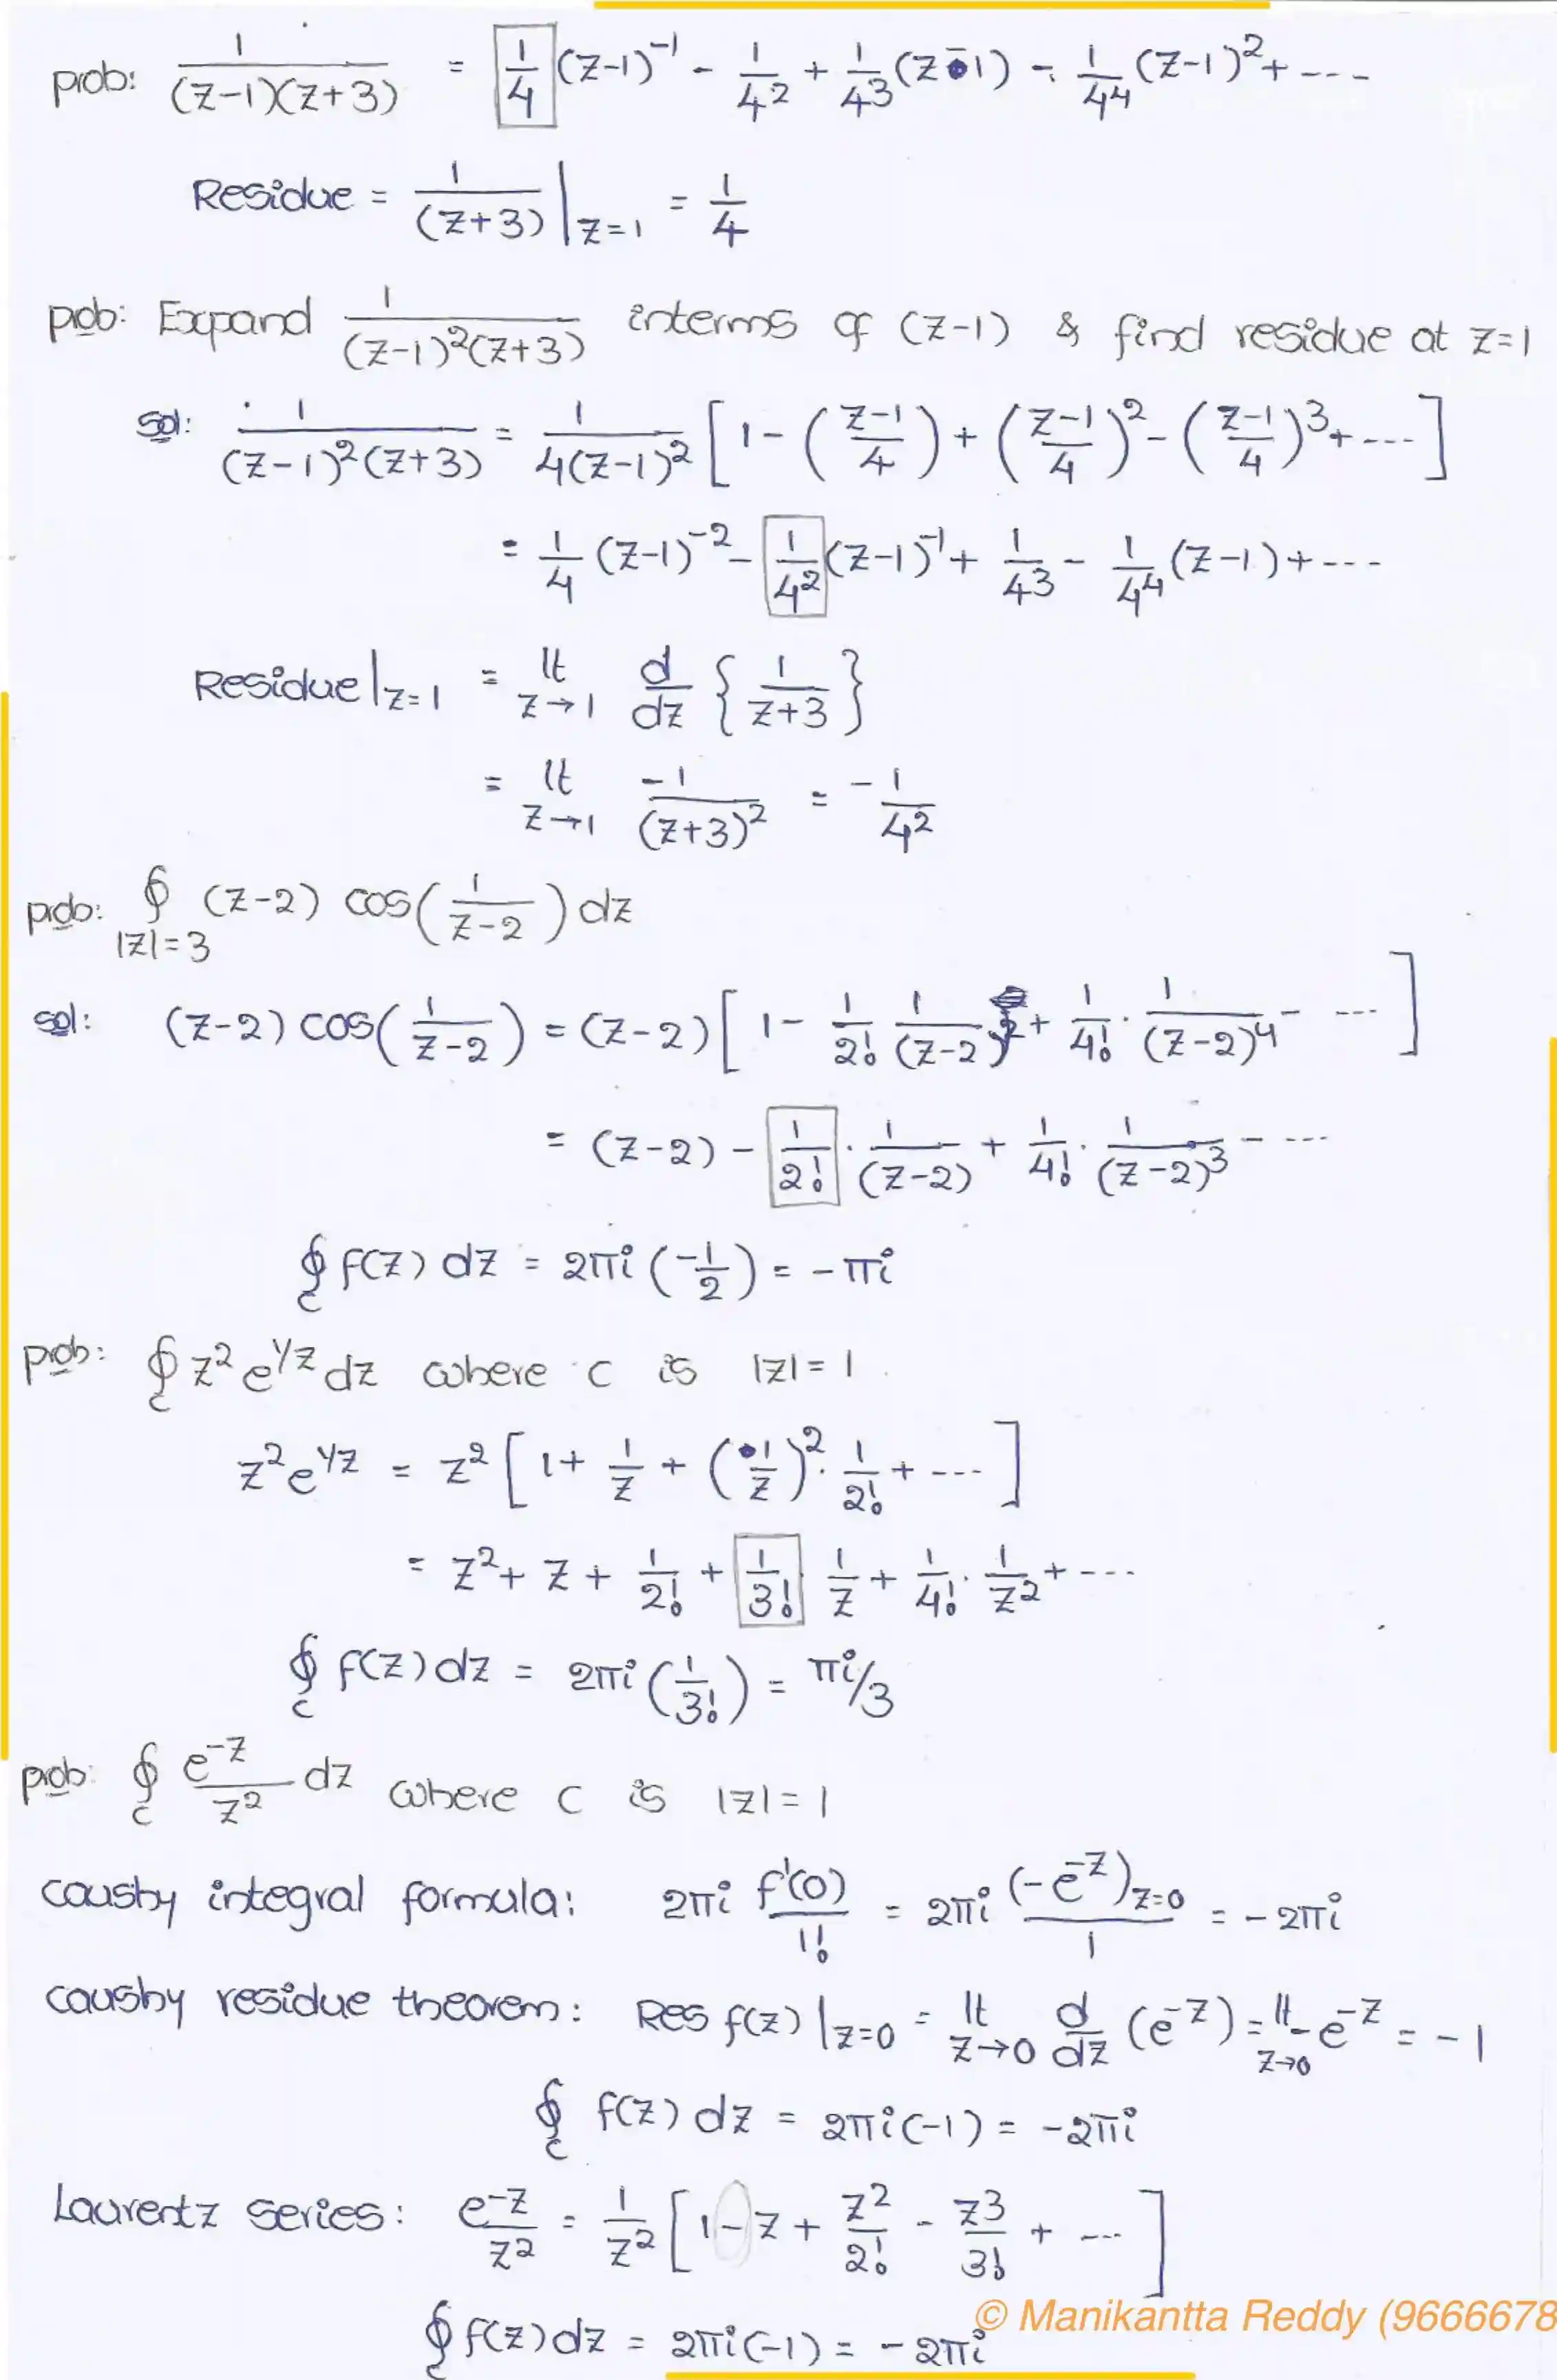 prob: 1/((z-1)(z+3)) = 1/4 (z-1)^-1 - 1/4^2 + 1/4^3 (z-1) - 1/4^4 (z-1)^2 + ----
Residue = 1/(z+3) |z=1 = 1/4
prob: Expand 1/((z-1)^2(z+3)) interms of (z-1) & find residue at z=1
sol: 1/((z-1)^2(z+3)) = 1/(4(z-1)^2) [1 - ((z-1)/4) + ((z-1)/4)^2 - ((z-1)/4)^3 + ----]
= 1/4 (z-1)^-2 - 1/4^2 (z-1)^-1 + 1/4^3 - 1/4^4 (z-1) + ----
Residue|z=1 = lt z→1 d/dz {1/(z+3)}
= lt z→1 -1/(z+3)^2 = -1/4^2
prob: ∮|z|=3 (z-2) cos(1/(z-2)) dz
sol: (z-2) cos(1/(z-2)) = (z-2) [1 - 1/2! 1/(z-2)^2 + 1/4! · 1/(z-2)^4 - ----]
= (z-2) - 1/2! · 1/(z-2) + 1/4! · 1/(z-2)^3 - ----
∮c f(z) dz = 2πi (-1/2) = -πi
prob: ∮c z^2 e^1/z dz where c is |z| = 1
z^2 e^1/z = z^2 [1 + 1/z + (1/z)^2 · 1/2! + ----]
= z^2 + z + 1/2! + 1/3! 1/z + 1/4! · 1/z^2 + ----
∮c f(z) dz = 2πi (1/3!) = πi/3
prob: ∮c e^-z/z^2 dz where c is |z| = 1
caushy integral formula: 2πi f'(0)/1! = 2πi (-e^-z)z=0/1 = -2πi
caushy residue theorem: Res f(z)|z=0 = lt z→0 d/dz (e^-z) = lt z→0 -e^-z = -1
∮c f(z) dz = 2πi(-1) = -2πi
Laurentz series: e^-z/z^2 = 1/z^2 [1 - z + z^2/2! - z^3/3! + ----]
∮c f(z) dz = 2πi(-1) = -2πi
© Manikantta Reddy (9666678